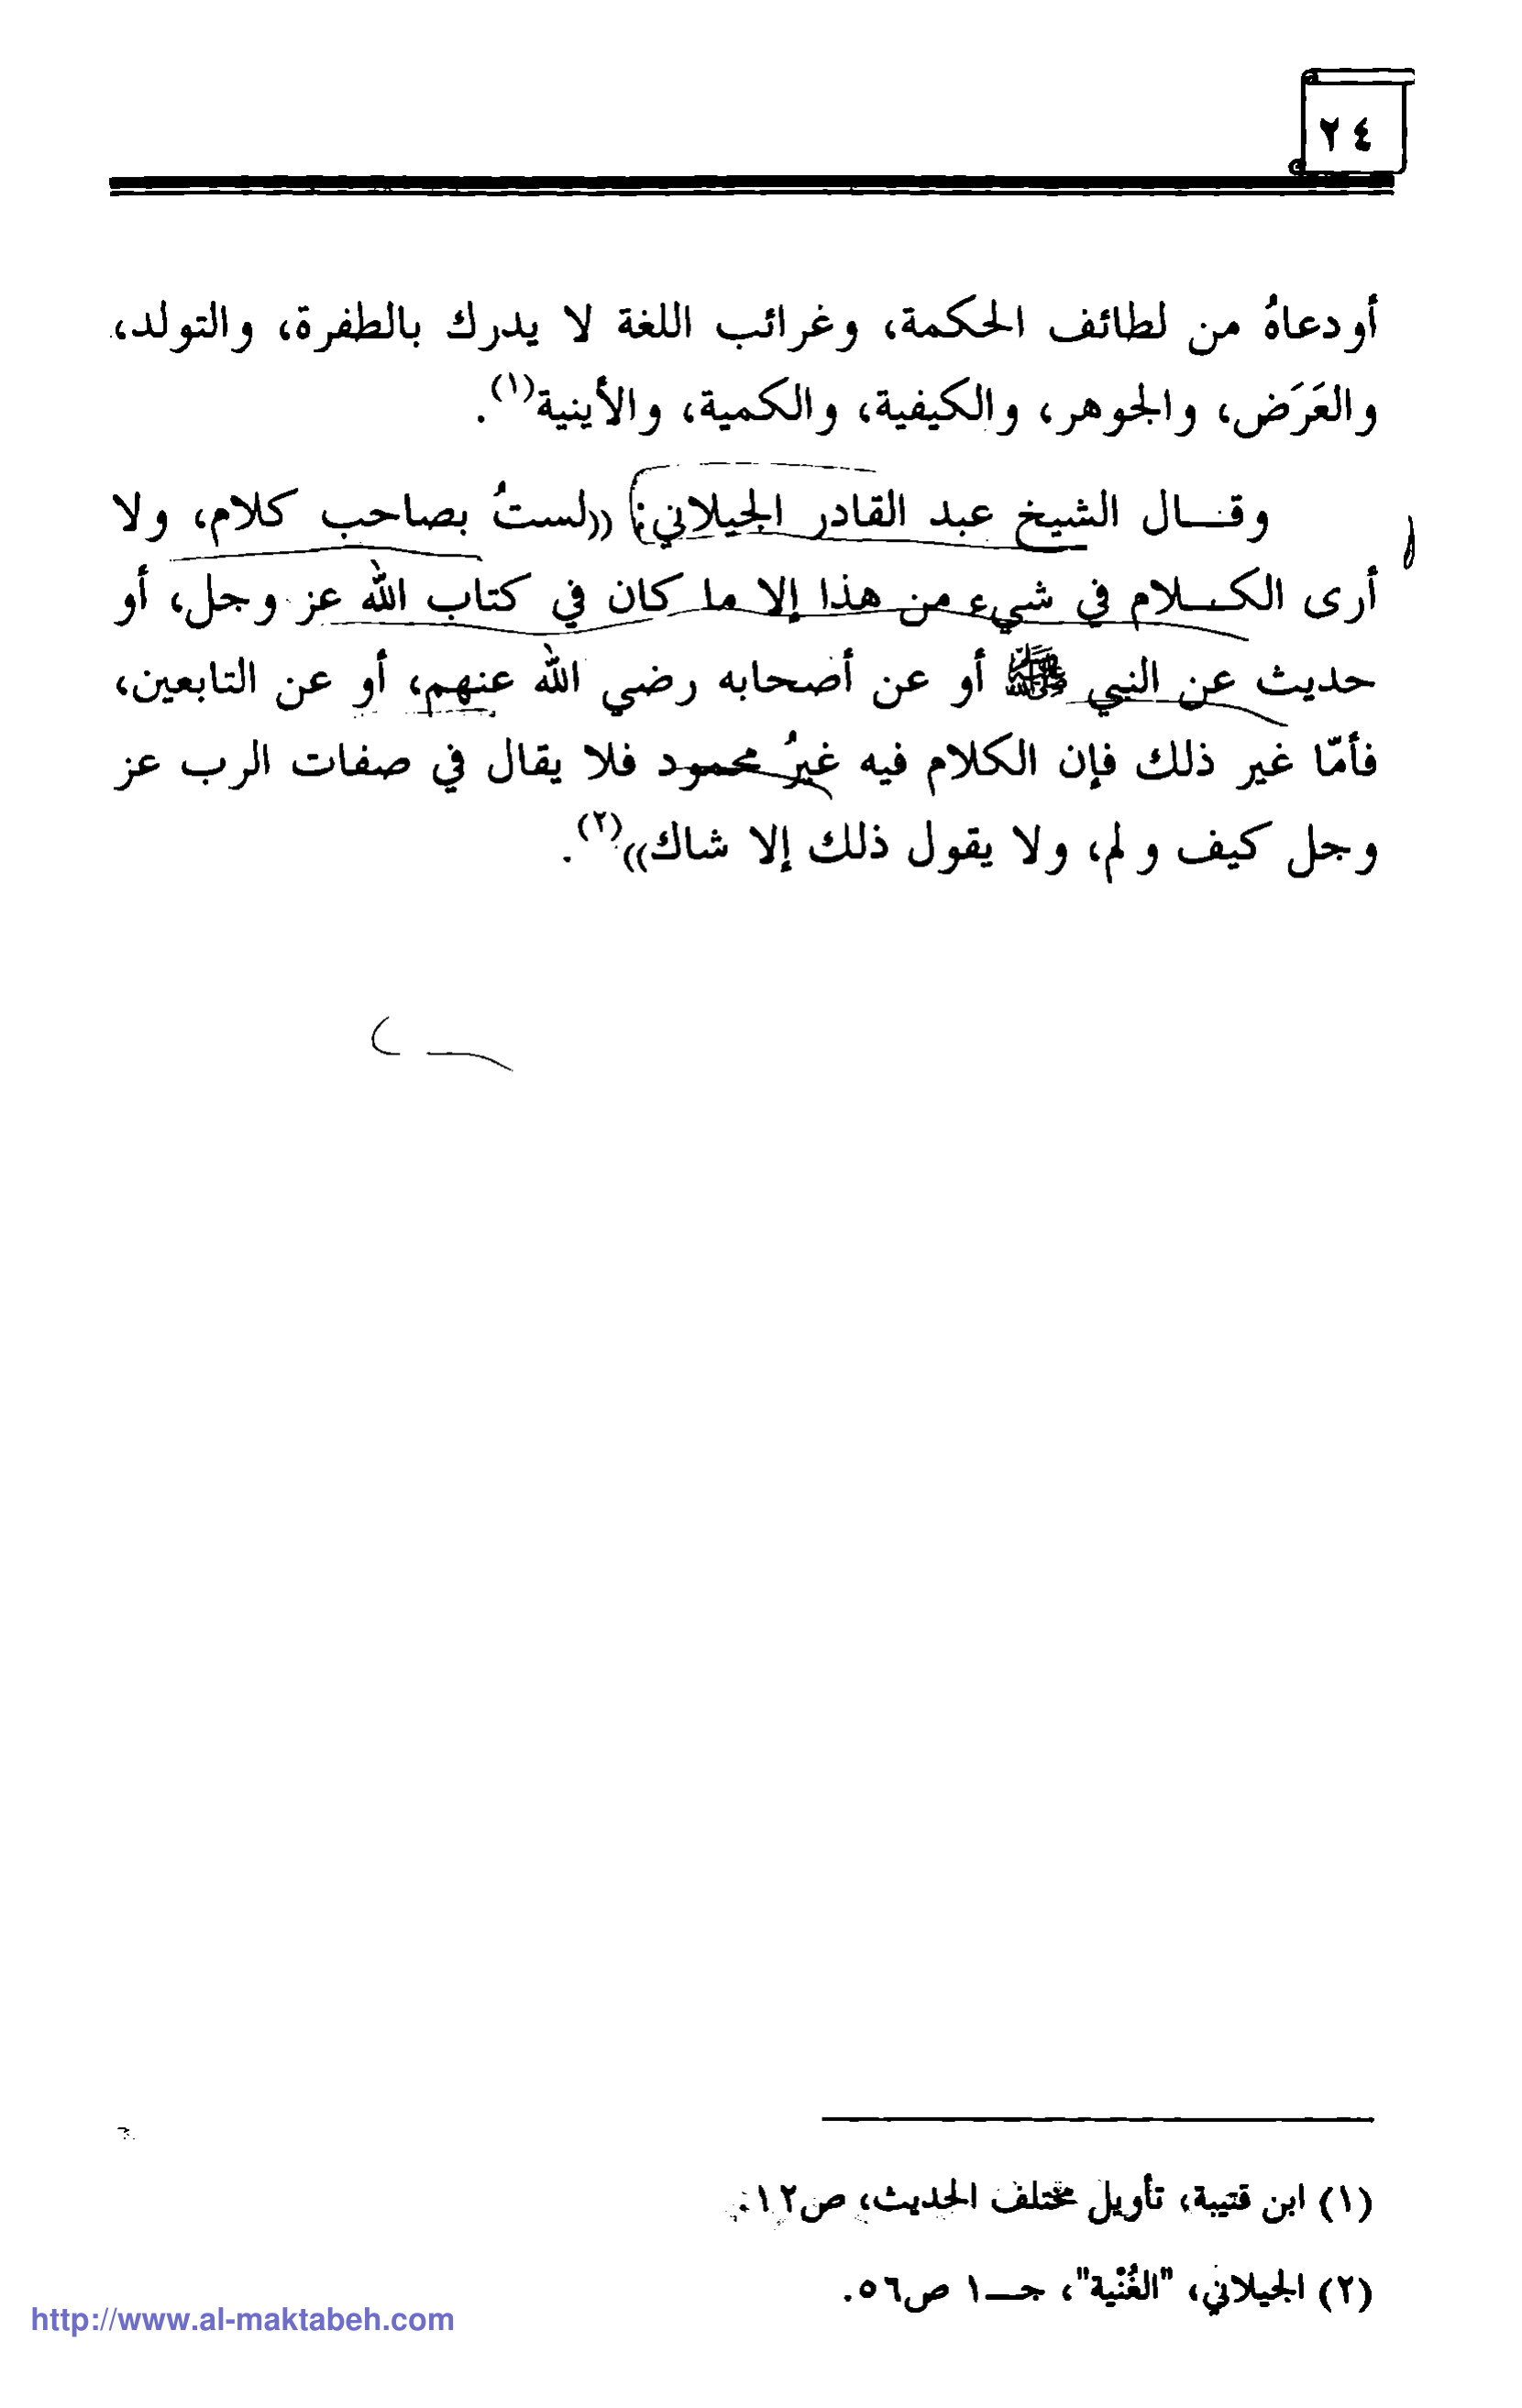 ٢٤
أودعاهُ من لطائف الحكمة، وغرائب اللغة لا يدرك بالطفرة، والتولد،
والعَرَض، والجوهر، والكيفية، والكمية، والأينية(١).
وقـــال الشيخ عبد القادر الجيلاني: ((لستُ بصاحب كلام، ولا
أرى الكـــلام في شيء من هذا إلا ما كان في كتاب الله عز وجل، أو
حديث عن النبي ﷺ أو عن أصحابه رضي الله عنهم، أو عن التابعين،
فأمّا غير ذلك فإن الكلام فيه غيرُ محمود فلا يقال في صفات الرب عز
وجل كيف ولم، ولا يقول ذلك إلا شاك))(٢).
(١) ابن قتيبة، تأويل مختلف الحديث، ص١٢.
(٢) الجيلاني، "الغُنْية"، جـــ١ ص٥٦.
http://www.al-maktabeh.com